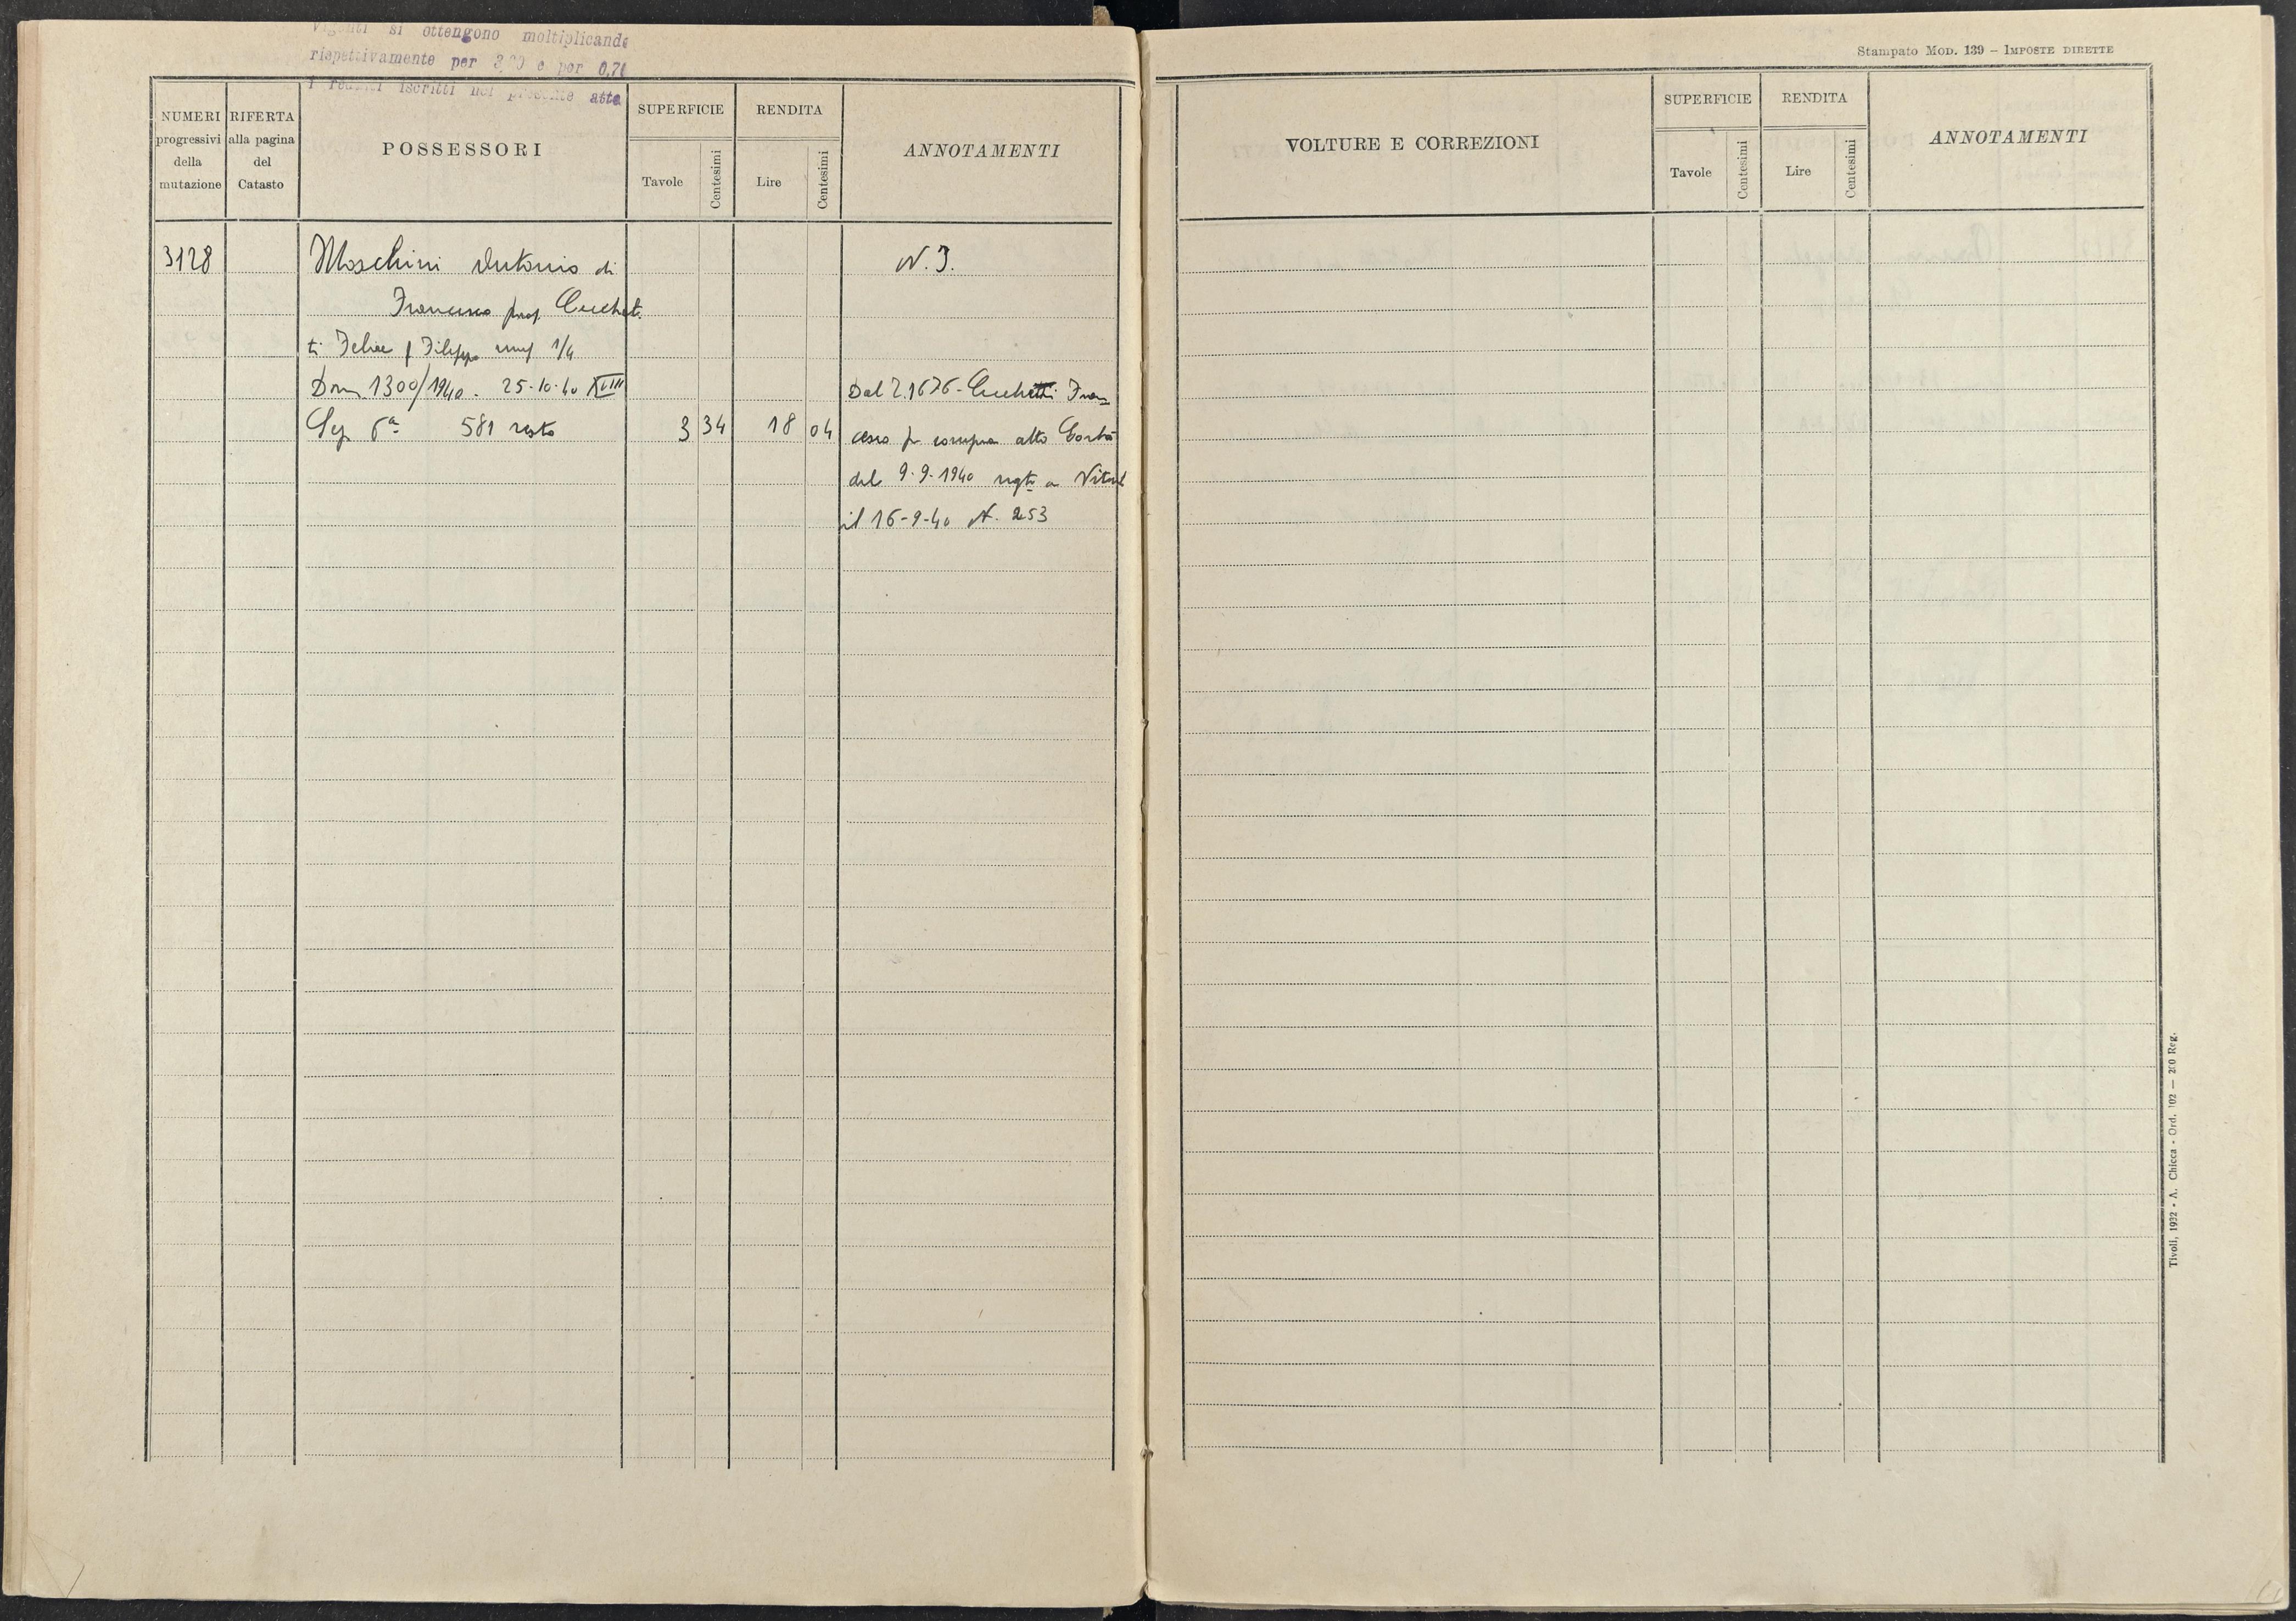 Vigenti si ottengono moltiplicando
rispettivamente per 3,20 e per 0,70
i redditi iscritti nel presente atto
Stampato MOD. 139 – IMPOSTE DIRETTE
NUMERI progressivi della mutazione
RIFERTA alla pagina del Catasto
POSSESSORI
SUPERFICIE
Tavole
Centesimi
RENDITA
Lire
Centesimi
ANNOTAMENTI
VOLTURE E CORREZIONI
SUPERFICIE
Tavole
Centesimi
RENDITA
Lire
Centesimi
ANNOTAMENTI
3128 Moschini Antonio di N. 3.
Francesco prop. Cucchet
ti Felice f Filippo usuf 1/4
Dom 1300/1940 - 25-10-40 XVIII Dal 2.1676 - Cucchetti Fran
Sez 6ª 581 resto 3 34 18 04 cesco p. compra atto
del 9-9-1940 regto a
il 16-9-40 N. 253
Tivoli, 1932 - A. Chicca - Ord. 102 — 200 Reg.